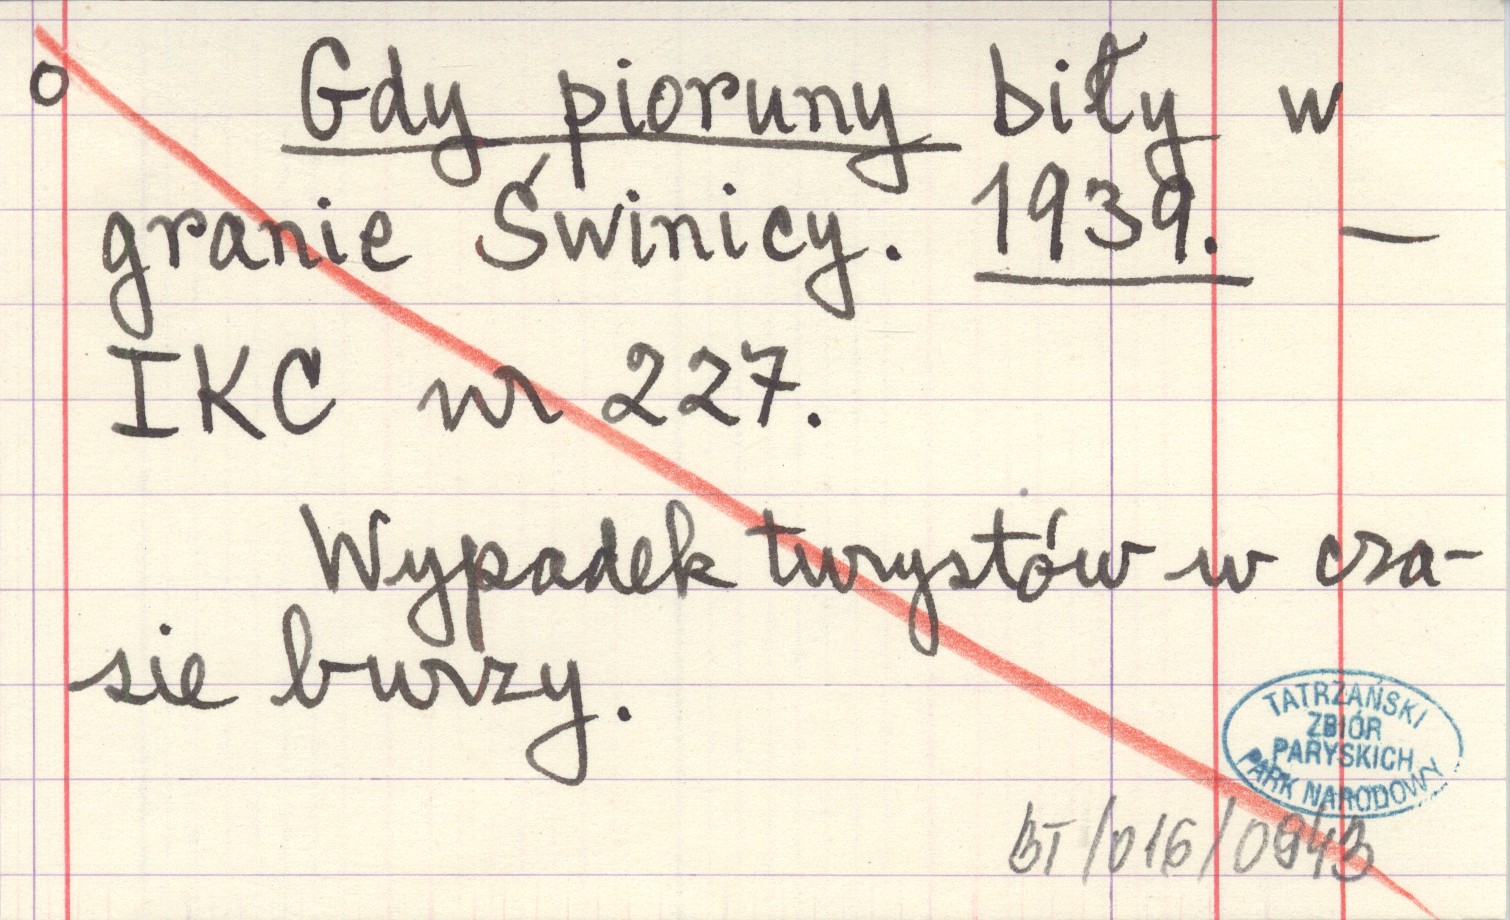 o Gdy pioruny biły w
granie Świnicy. 1939. —
IKC nr 227.
Wypadek turystów w cza-
sie burzy.
TATRZAŃSKI
ZBIÓR
PARYSKICH
PARK NARODOWY
BT/016/0943